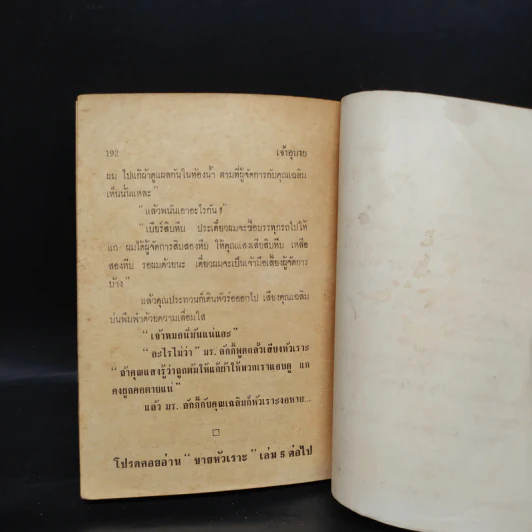 192 เจ้าอุบาย
ผม ไปแก้ผ้าดูแผลกันในห้องน้ำ ตามที่ผู้จัดการกับคุณเฉลิม
เห็นนั่นแหละ"
"แล้วพนันเอาอะไรกัน?"
"เบียร์สิบหีบ ประเดี๋ยวผมจะซื้อบรรทุกรถไปให้
แก ผมได้ผู้จัดการสิบสองหีบ ให้คุณแสงเสียสิบหีบ เหลือ
สองหีบ รอผมด้วยนะ เดี๋ยวผมจะเป็นเจ้ามือเลี้ยงผู้จัดการ
บ้าง"
แล้วคุณประทวนก็เดินหัวร่อออกไป เสียงคุณเฉลิม
บ่นพึมพำด้วยความเลื่อมใส
"เจ้าหมอนี่มันแน่แฮะ"
"อะไรไม่ว่า" มร. ลักกี้พูดกลั้วเสียงหัวเราะ
"ถ้าคุณแสงรู้ว่าถูกต้มให้แก้ผ้าให้พวกเราแอบดู แก
คงผูกคอตายแน่"
แล้ว มร. ลักกี้กับคุณเฉลิมก็หัวเราะงอหาย...
โปรดคอยอ่าน "ขายหัวเราะ" เล่ม 5 ต่อไป